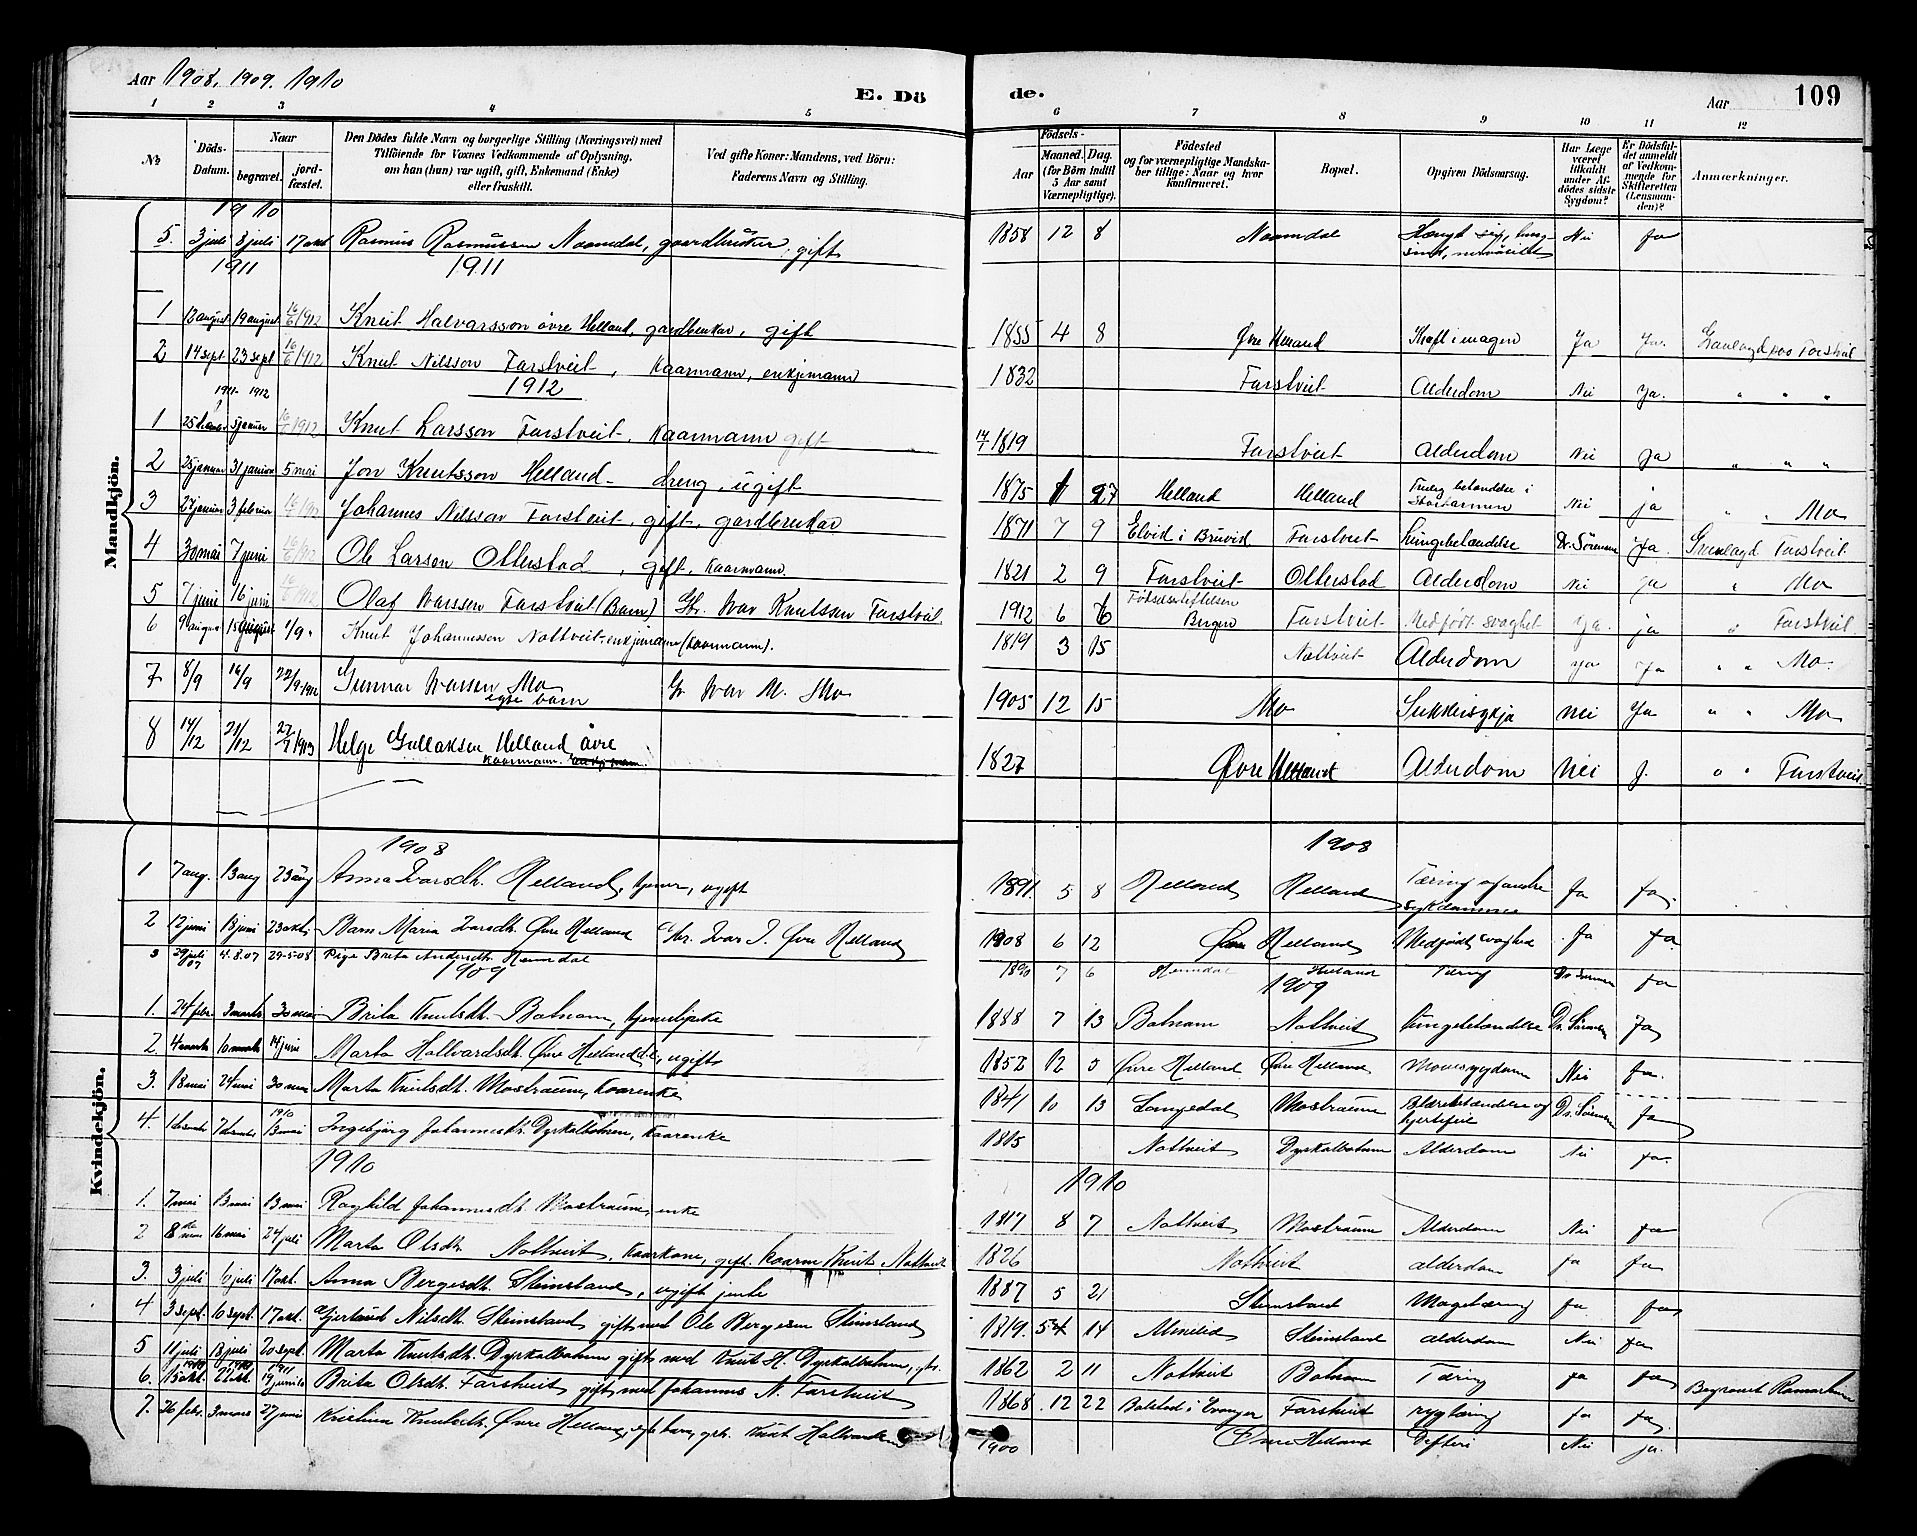 Aar 1908, 1909. 1910
E. Dö
de.
Aar
109
1 2 3 4 5 6 7 8 9 10 11 12
№
Döds-Datum.
Naar
begravet.
jord-fæstet.
Den Dödes fulde Navn og borgerlige Stilling (Næringsvei) med
Tilföiende for Voxnes Vedkommende af Oplysning,
om han (hun) var ugift, gift, Enkemand (Enke)
eller fraskilt.
Ved gifte Koner: Mandens, ved Börn:
Faderens Navn og Stilling.
Födsels-
Aar
Maaned. Dag.
(for Börn indtil
5 Aar samt
Værnepligtige).
Födested
og for værnepligtige Mandska-
ber tillige: Naar og hvor
konfirmeret.
Bopæl.
Opgiven Dödsaarsag.
Har Læge
været
tilkaldt
under Af-
dödes sidste
Sygdom?
Er Dödsfal-
det anmeldt
af Vedkom-
mende for
Skifteretten
(Lensman-
den)?
Anmærkninger.
Mandkjön.
1910
5. 3 juli 8 juli 17 okt Rasmus Rasmussen Naamdal, gaardbruker, gift 1858 12 8 Naamdal Hængt sig, tung-
sind, nervøsitet Nei ja
1911 1911
1 12 august 19 august 16/6 1912 Knut Halvarsson øvre Helland, gardbrukar, gift 1855 4 8 Øvre Helland Kræft i magen Ja Ja. Gravlagd paa Farstveit
2 14 sept 23 sept 16/6 1912 Knut Nilsson Farstveit, Kaarmann, enkjemann 1832 Farstveit Alderdom Nei Ja. " " "
1911 - 1912 1912
1 5 januar 16/6 1912 Knut Larsson Farstveit, Kaarmann gift 1819 Farstveit Alderdom Nei Ja " " "
2 25 januar 31 januar 5 mai Jon Knutsson Helland - dreng, ugift 1875 1 27 Helland Helland betændelse i Nei ja " " Mo
3 27 januar 3 februar Johannes Nilsson Farstveit, gift, gardbrukar 1871 7 9 i Bruvid Farstveit Lungebetændelse Dr. Sørensen Ja. Gravlagd Farstveit
4 30 mai 7 juni 16/6 1912 Ole Larsson Otterstad, gift, Kaarmann. 1821 2 9 Farstveit Otterstad Alderdom Nei Ja " Mo
5 7 juni 16 juni 16/6 1912 Olaf Ivarssen Farstveit (Barn) Gbr. Ivar Knutssen Farstveit 1912 6 6 Fødselsstiftelsen
Bergen Farstveit Medfødt svaghet Ja. ja " Farstveit.
6 9 august 15 august 1/9 " Knut Johannessen Nottveit enkjemann (Kaarmann). 1819 3 15 Nottveit Alderdom ya Ja " " Mo.
7 8/9 16/9 22/9 1912 Gunnar Ivarssen Mo
egte barn Gb Ivar M. Mo 1905 12 15 Mo Sukkersykja Nei Ja " " Mo
8 14/12 21/12 27/1 1913 Helge Gullaksen Helland, øvre
Kaarmann. 1827 Øvre Helland Alderdom Nei J. " " Farstveit.
Kvindekjön.
1908 1908
1 7 aug. 13 aug 23 aug Anna Ivarsdtr. Helland, tjener, ugift 1891 5 8 Helland Helland Tæring og andre
sykdommer Ja Ja.
2 12 juni 18 juni 23 okt. Barn Maria Ivarsdtr. Øvre Helland Gbr. Ivar J. Øvre Helland 1908 6 12 Øvre Helland Medfødt svaghed Ja Ja
3 29 juli 07 4.8.07 29-5-08 Pige Brita Andersdtr. 1890 7 6 Helland Tæring Dr. Sørensen Ja
1909 1909
1. 24 febr. 3 marts 30 mai Brita Knutsdtr. Botnann, tjenestpike 1888 7 13 Botnann Nottveit Lungebetændelse Dr. Sørensen Ja
2. 4 marts 10 marts 14 juni Marta Hallvardsdtr. Øvre Helland, ugift 1852 12 5 Øvre Helland Øvre Helland Mavesygdom Nei Ja.
3. 18 mai 24 mai 30 mai Marta Knutsdtr. Mostraum, Kaarenke 1841 10 13 Langedal Mostraum Blærebetændelse og
hjertefeil Dr. Sørensen Ja
4. 1910 13 mai Ingebjørg Johannesdtr. Dyrkolbotnen, Kaarenke 1815 Nottveit Dyrkolbotnen Alderdom Nei Ja.
1910 1910
1. 7 mai 13 mai 13 mai Raghild Johannesdtr. Mostraum, enke 1817 8 7 Nottveit Mostraum Alderdom Nei Ja
2 8de mai 16 mai 24 juli Marta Olsdtr. Nottveit, Kaarkone, gift. Kaarm Knut Nottveit 1826 Nottveit alderdom Ja Ja
3. 3 juli 6 juli 17 okt. Anna Bergesdtr. Steinsland, ugift jente 1887 5 21 Steinsland Mavetæring Ja Ja
4 3 sept. 10 sept. 17 okt. Gjertrud Nilsdtr. Steinsland, gift med Ole Bergesen Steinsland 1819. 14 Steinsland alderdom Nei Ja
5 11 juli 18 juli 20 sept. Marta Knutsdtr. Dyrkolbotnen gift med Knut H. Dyrkolbotnen, gbr. 1862 2 11 Nottveit Botnann Tæring Ja Ja Begravet
6. 15 okt. 1910 1911 Brita Olsdtr. Farstveit, gift med Johannes N. Farstveit 1868. 12 22 Bolstad i Evanger Farstveit rygtæring Ja Ja.
7. 26 febr. 3 mars 27 juni Kristina Knutsdtr. Øvre Helland, egte barn, gbr. Knut Hallvardsen 1900 Øvre Helland Difteri Nei ja.